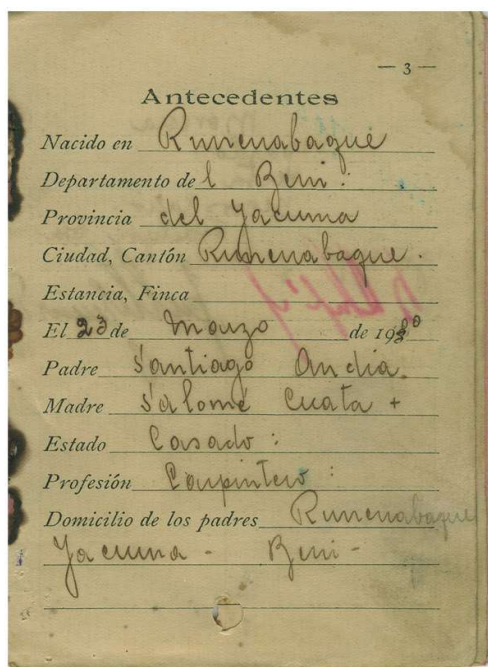 — 3 —
Antecedentes
Nacido en Rurrenabaque
Departamento del Beni:
Provincia del Yacuma
Ciudad, Cantón Rurrenabaque.
Estancia, Finca
El 23 de Marzo de 19
Padre Santiago Andia.
Madre Salomé Cuata +
Estado Casado:
Profesión Carpintero:
Domicilio de los padres Rurrenabaque
Yacuma - Beni -